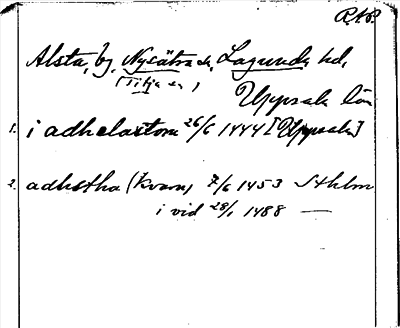 RAP.
Alsta, by, Nysätra sn, Lagunda hd,
Uppsala län
1. i adhelastom 26/6 1444 [Uppsala]
2. adhstha (kvarn) 7/6 1453 Sthlm
i vid 28/1 1488 —